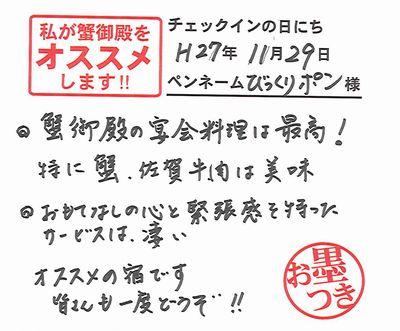 私が蟹御殿を
オススメ
します!!
チェックインの日にち
H27年 11月29日
ペンネームびっくりポン様
◎ 蟹御殿の宴会料理は最高！
特に蟹、佐賀牛肉は美味
◎ おもてなしの心と緊張感を持った
サービスは、凄い
オススメの宿です
皆さんも一度どうぞ!!
お墨つき